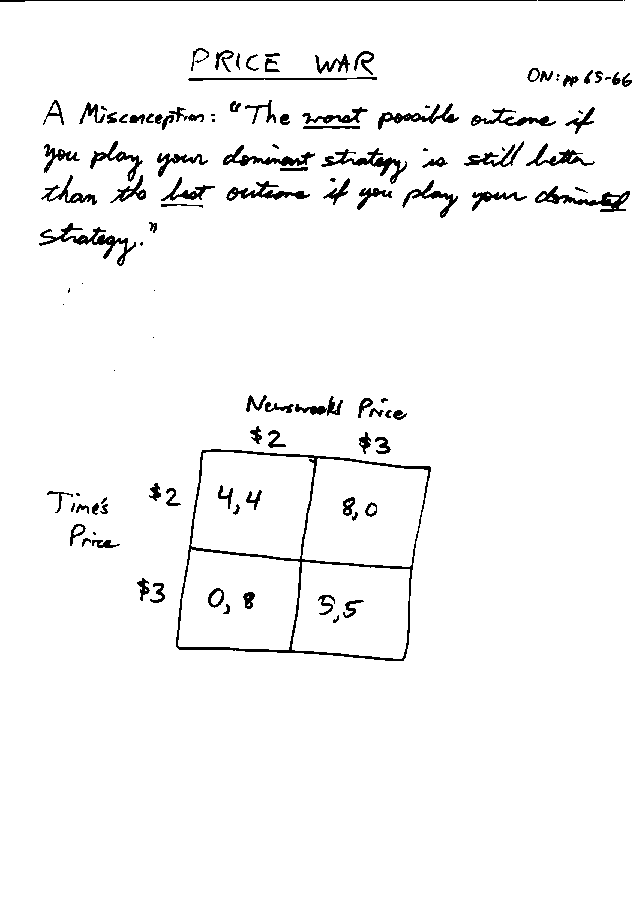 PRICE WAR
ON: pp 65-66
A Misconception: "The worst possible outcome if
you play your dominant strategy, is still better
than the best outcome if you play your dominated
strategy."
Newsweek's Price
$2 $3
Time's
Price
$2 4,4 8,0
$3 0,8 5,5